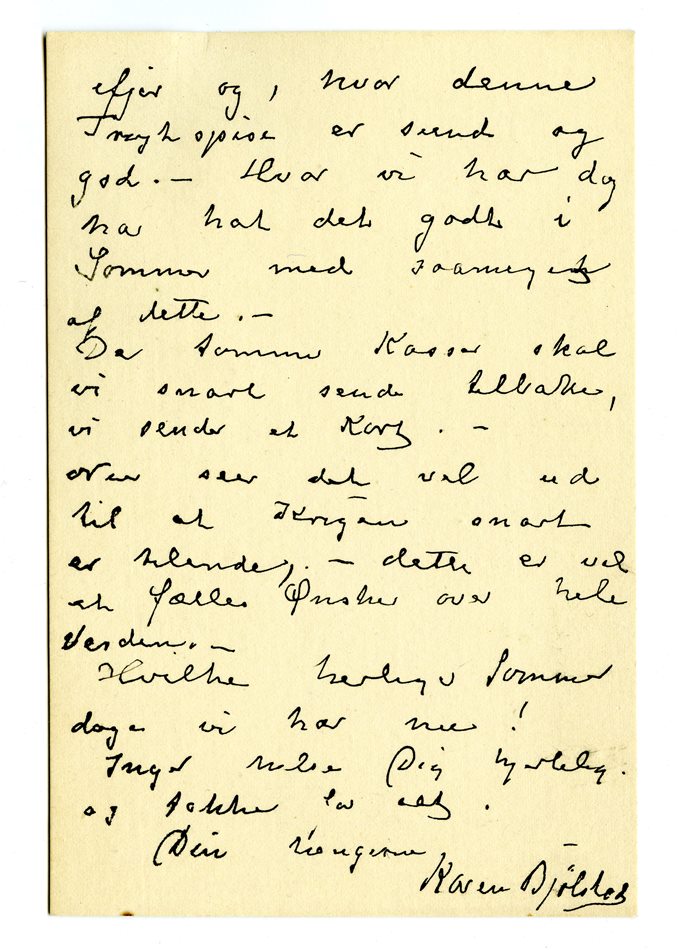 og, hvor denne
Frugtspise er sund og
god. – Hvor vi har dog
ha hat det godt i
Sommer med saameget
af dette. –
De tomme Kasser skal
vi snart sende tilbake,
vi sender et Kort. –
Nu seer det vel ud
til at Krigen snart
er tilende, – dette er vel
et fælles Ønske over hele
Verden. –
Hvilke herlige Sommer
dage vi har nu!
Inger hilse Dig hjertelig.
og takke for alt.
Din hengivne
Karen Bjølstad